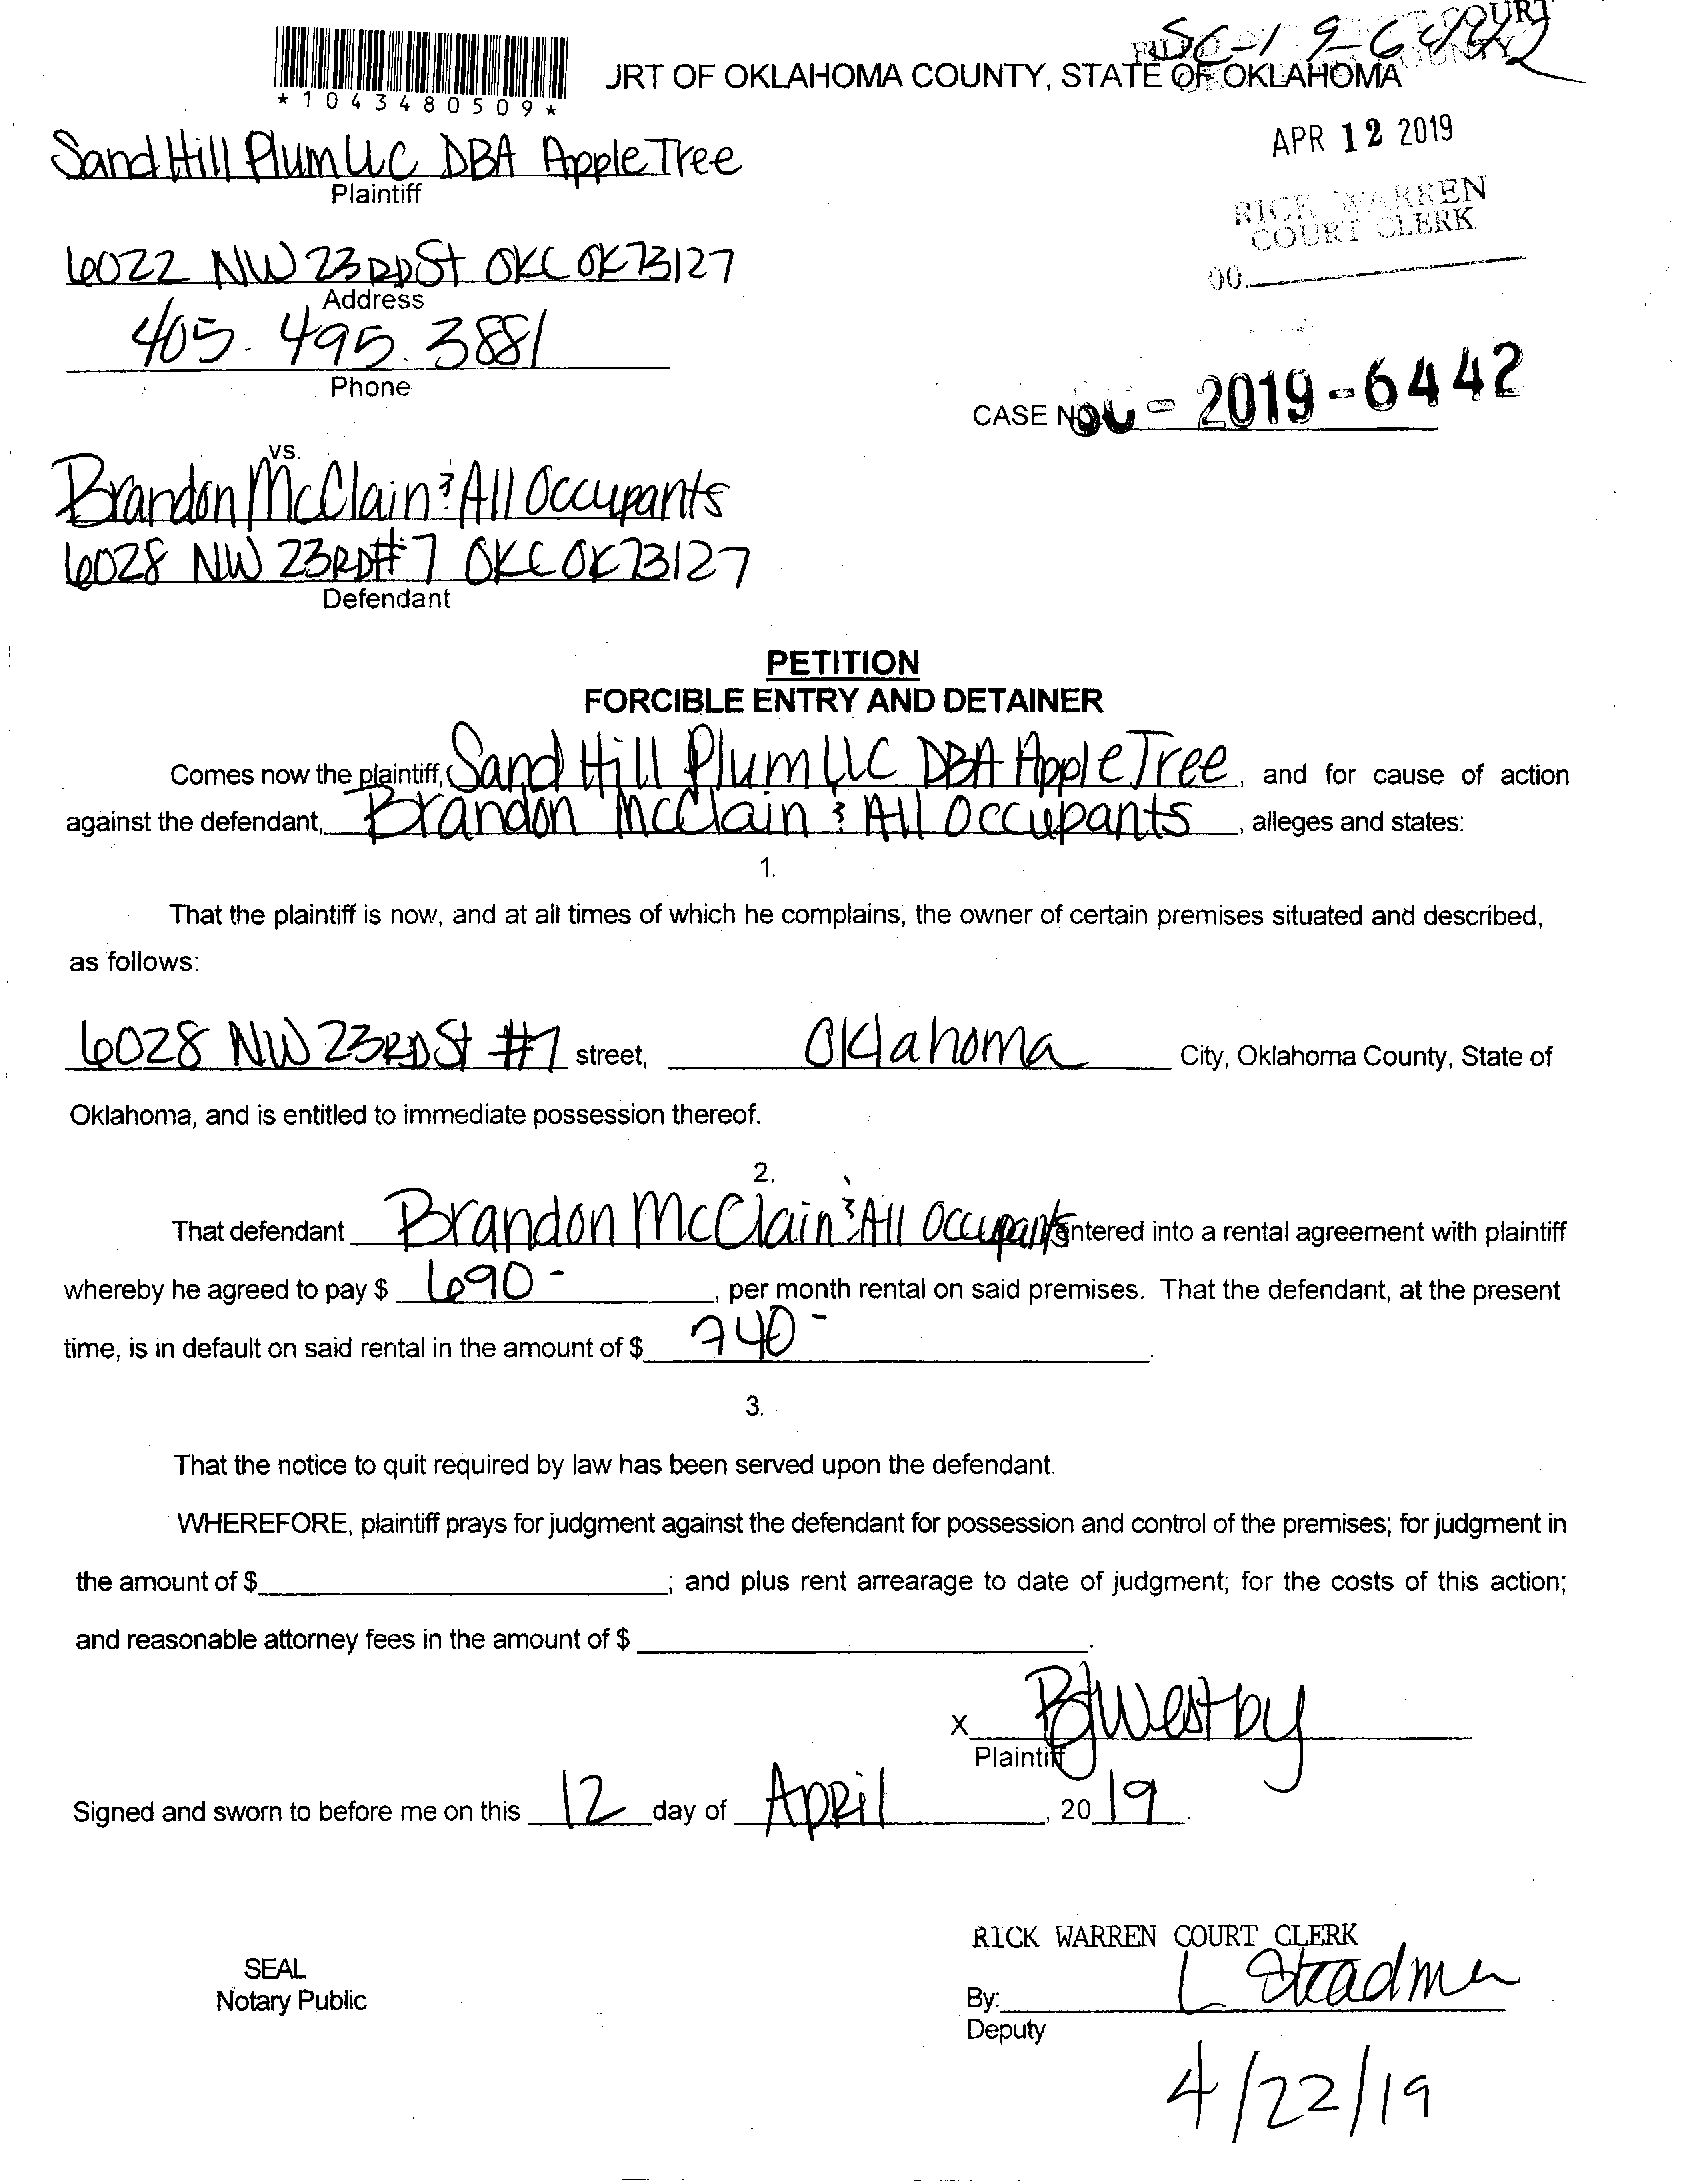 SC-19-6442
*1043480509*
JRT OF OKLAHOMA COUNTY, STATE OF OKLAHOMA
APR 12 2019
Sand Hill Plum LLC DBA Apple Tree
Plaintiff
RICK WARREN
COURT CLERK
6022 NW 23RD St OKC OK 73127
Address
405. 495. 3881
Phone
CASE NO. SC - 2019 - 6442
vs.
Brandon McClain & All Occupants
6028 NW 23RD # 7 OKC OK 73127
Defendant
PETITION
FORCIBLE ENTRY AND DETAINER
Comes now the plaintiff, Sand Hill Plum LLC DBA Apple Tree, and for cause of action
against the defendant, Brandon McClain & All Occupants, alleges and states:
1.
That the plaintiff is now, and at all times of which he complains, the owner of certain premises situated and described,
as follows:
6028 NW 23RD St #7 street, Oklahoma City, Oklahoma County, State of
Oklahoma, and is entitled to immediate possession thereof.
2.
That defendant Brandon McClain & All Occupants entered into a rental agreement with plaintiff
whereby he agreed to pay $ 690 -, per month rental on said premises. That the defendant, at the present
time, is in default on said rental in the amount of $ 740 -.
3.
That the notice to quit required by law has been served upon the defendant.
WHEREFORE, plaintiff prays for judgment against the defendant for possession and control of the premises; for judgment in
the amount of $ ; and plus rent arrearage to date of judgment; for the costs of this action;
and reasonable attorney fees in the amount of $ .
x BJWestby
Plaintiff
Signed and sworn to before me on this 12 day of April, 20 19.
RICK WARREN COURT CLERK
SEAL
Notary Public
By: L Steadman
Deputy
4/22/19